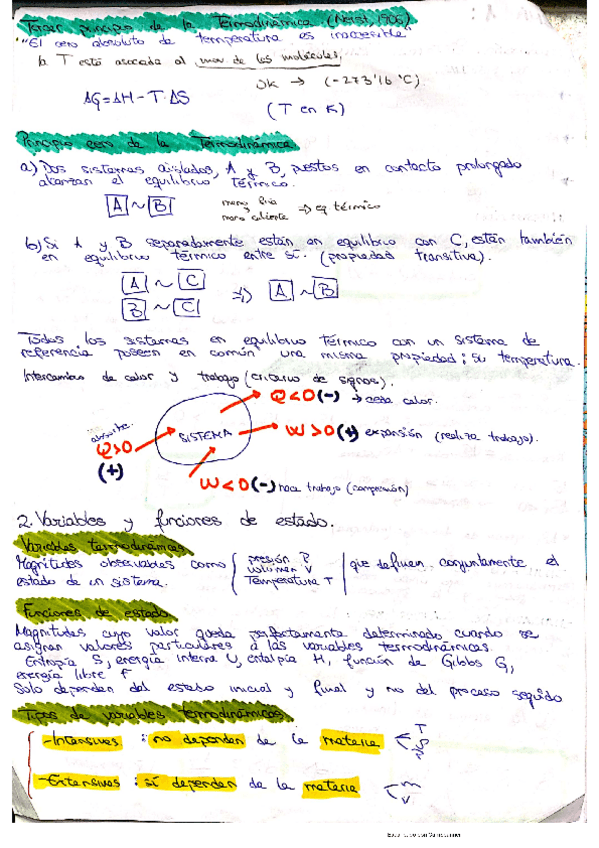 Tercer principio de la Termodinámica (Nerst, 1906)
"El cero absoluto de temperatura es inaccesible"
la T está asociada al mov de las moléculas.
0k → (-273'16 °C)
ΔG=ΔH-T·ΔS
(T en K)
Principio cero de la Termodinámica
a) Dos sistemas aislados, A y B, puestos en contacto prolongado
alcanzan el equilibrio térmico.
A ~ B
menos caliente → eq térmico
b) Si A y B separadamente están en equilibrio con C, están también
en equilibrio térmico entre sí. (propiedad transitiva).
A ~ C
B ~ C
⇒ A ~ B
Todos los sistemas en equilibrio térmico con un sistema de
referencia poseen en común una misma propiedad; su temperatura.
Intercambio de calor y trabajo (criterio de signos).
absorbe
Q>0
(+)
SISTEMA
Q<0 (-) → cede calor.
W>0 (+) expansión (realiza trabajo).
W<0 (-) hace trabajo (compresión)
2. Variables y funciones de estado.
Variables termodinámicas
Magnitudes observables como presión P volumen V Temperatura T que definen conjuntamente el
estado de un sistema.
Funciones de estado
Magnitudes cuyo valor queda perfectamente determinado cuando se
asignan valores particulares a las variables termodinámicas.
Entropía S, energía interna U, entalpía H, función de Gibbs G,
energía libre F
Solo dependen del estado inicial y final y no del proceso seguido
Tipos de variables termodinámicas
-Intensivas : no dependen de la materia T
-Extensivas : sí dependen de la materia m V